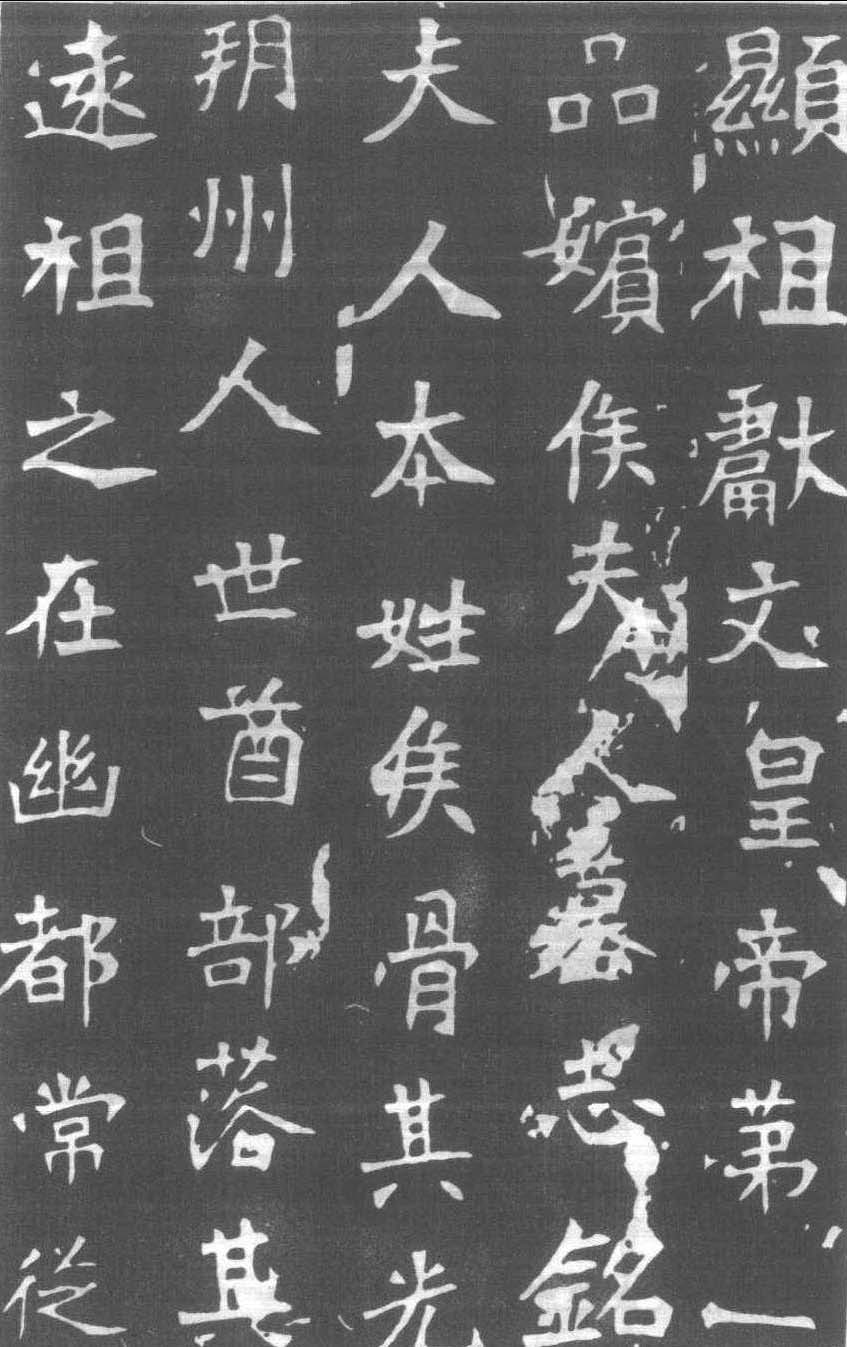 顯祖獻文皇帝第一
品嬪侯夫人墓志銘
夫人本姓侯骨其先
朔州人世酋部落其
遠祖之在幽都常從